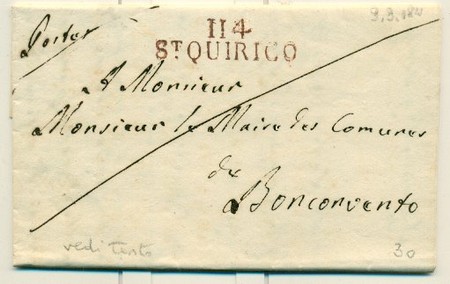 9.3.181
114
Sᵀ QUIRICO
A Monsieur
Monsieur le Maire des Comunes
de
Bonconvento
vedi testo
30